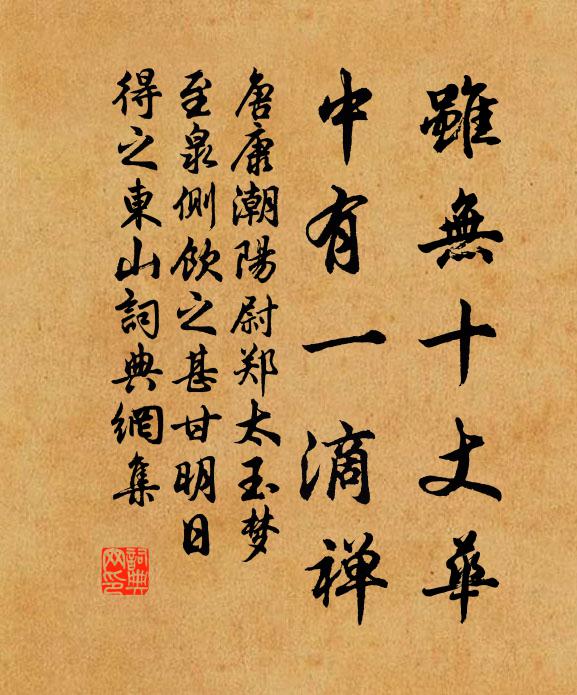 雖無十丈華
中有一滴禅
唐庚潮陽尉郑太玉梦
至泉侧飲之甚甘明日
得之東山詞典網集
詞典
网印